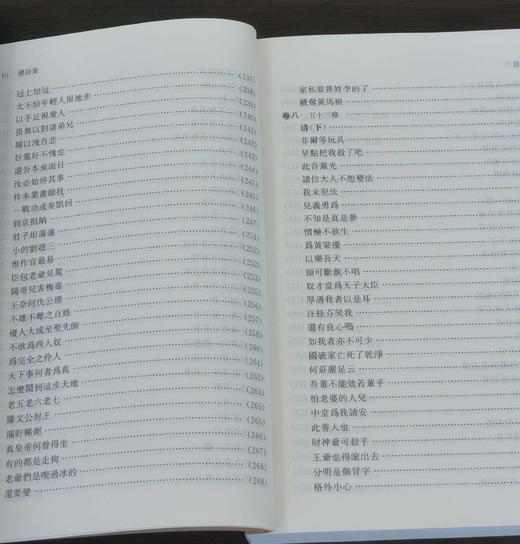 10 優語集
冠上加冠 (237)
太不給年輕人留地步 (238)
以手足視衆人 (239)
畏無以對諸弟兄 (240)
聊以洩吾悲 (241)
奸黨好不愧也 (242)
還吾本來面目 (243)
汝必始終其事 (244)
伶本業畫餘技 (245)
一戰功成奏凱回 (246)
到京捐納 (247)
君子坦蕩蕩 (251)
小的劉趕三 (251)
惟作官最易 (252)
臣包老爺見駕 (252)
闊哥兒害梅毒 (253)
王奈何仇公理 (254)
不雄不雌之百姓 (256)
優人大成至聖先師 (257)
不欲爲西人奴 (258)
爲完全之伶人 (259)
天下事何者爲真 (261)
怎麼鬧到這步天地 (262)
老五老六老七 (265)
滕文公封王 (265)
滿貯稀粥 (265)
真皇帝何曾得坐 (266)
有的都是走狗 (267)
老爺們是喫過冰的 (268)
還要變 (268)
目
家私要算姓李的了
褫奪黃馬褂
卷八 五十三條
清(下)
非爾等玩具
早點把我殺了吧
此吾黨光
諸位大人不想變法
我未犯法
見義勇爲
不知是真是夢
憤極不欲生
爲黃粱擾
以樂吾天
頭可斷戲不唱
奴才當爲天子大臣
厚遇我者以是耳
汪桂芬笑我
還有良心嗎
如我者亦不可少
國破家亡死了乾淨
何莊嚴足云
吾輩不能效若輩乎
怕老婆的人兒
中堂爲我請安
此善人也
財神爺可殺乎
王爺也得滾出去
分明是個冒字
格外小心